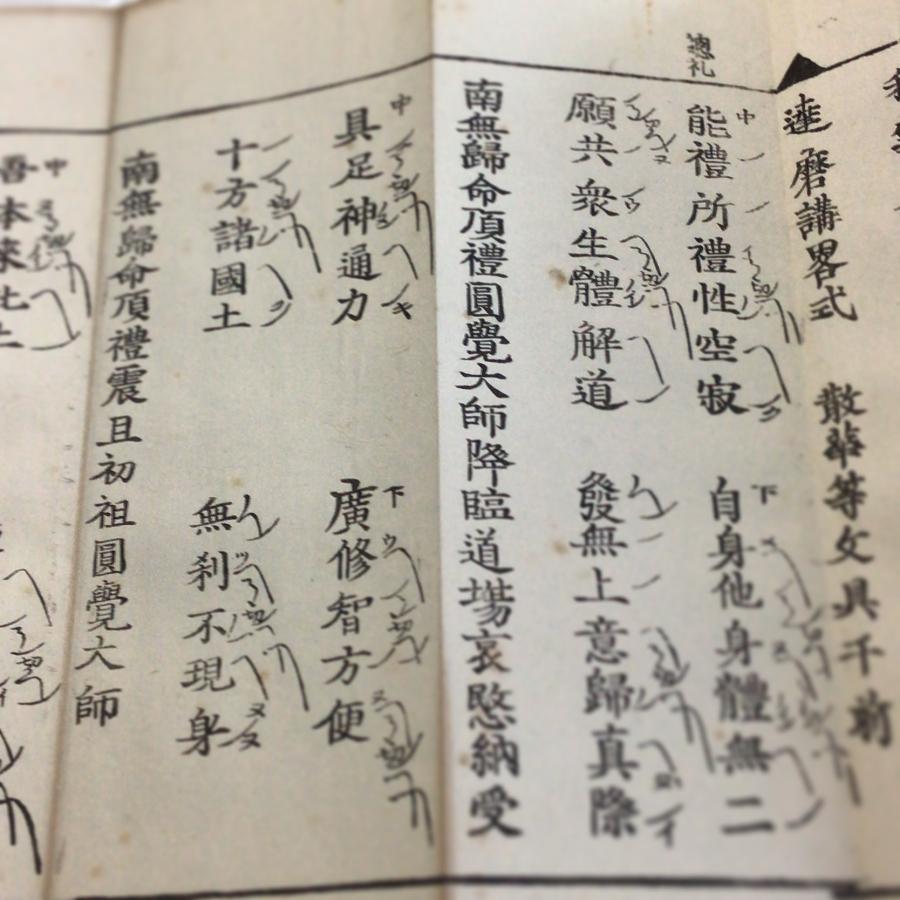 達磨講畧式 散華等文具千前
總礼
中
能禮所禮性空寂
下
自身他身體無二
願共衆生體解道
發無上意歸真際
南無歸命頂禮圓覺大師降臨道場哀愍納受
中
具足神通力
下
廣修智方便
十方諸國土
無刹不現身
南無歸命頂禮震旦初祖圓覺大師
中
吾本來此土